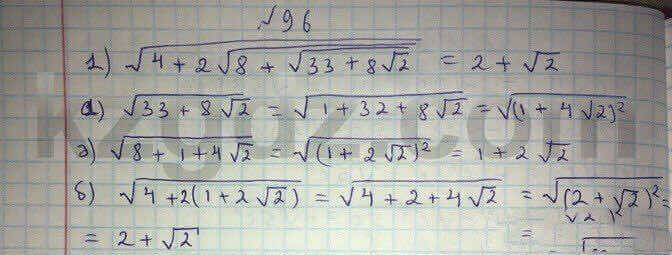 №96
1) √(4 + 2√(8 + √(33 + 8√2))) = 2 + √2
а) √(33 + 8√2) = √(1 + 32 + 8√2) = √(1 + 4√2)²
д) √(8 + 1 + 4√2) = √((1 + 2√2)²) = 1 + 2√2
б) √(4 + 2(1 + 2√2)) = √(4 + 2 + 4√2) = √((2 + √2)²) =
= 2 + √2 =